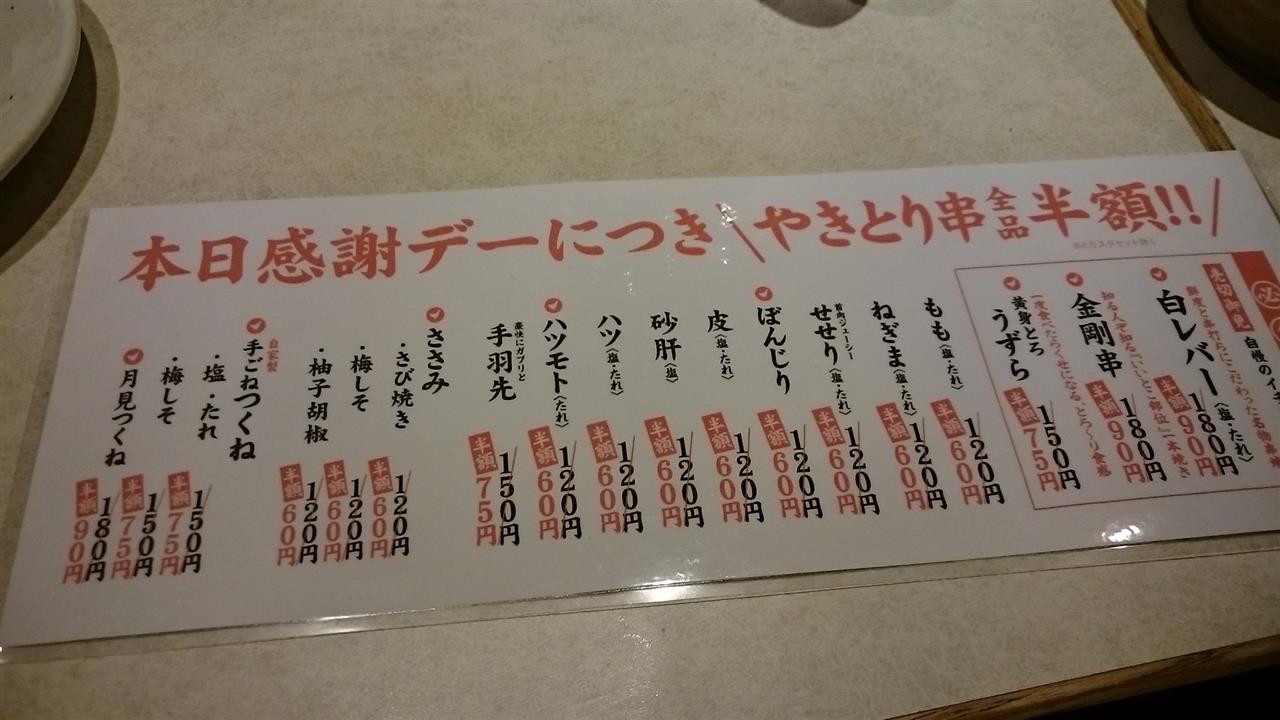 本日感謝デーにつき\やきとり串全品半額!!/
売切御免
自慢のイチ
鮮度と串打ちにこだわった名物串
白レバー〈塩・たれ〉
180円
半額90円
知る人ぞ知る「いいとこ部位」一本焼き
金剛串
180円
半額90円
一度食べたらくせになる、とろ〜り食感
黄身とろ
うずら
150円
半額75円
もも〈塩・たれ〉
120円
半額60円
ねぎま〈塩・たれ〉
120円
半額60円
首肉ジューシー
せせり〈塩・たれ〉
120円
半額60円
ぼんじり
120円
半額60円
皮〈塩・たれ〉
120円
半額60円
砂肝〈塩〉
120円
半額60円
ハツ〈塩・たれ〉
120円
半額60円
ハツモト〈たれ〉
120円
半額60円
豪快にガブリと
手羽先
150円
半額75円
ささみ
・さび焼き
120円
半額60円
・梅しそ
120円
半額60円
・柚子胡椒
120円
半額60円
自家製
手ごねつくね
・塩・たれ
150円
半額75円
・梅しそ
150円
半額75円
月見つくね
180円
半額90円